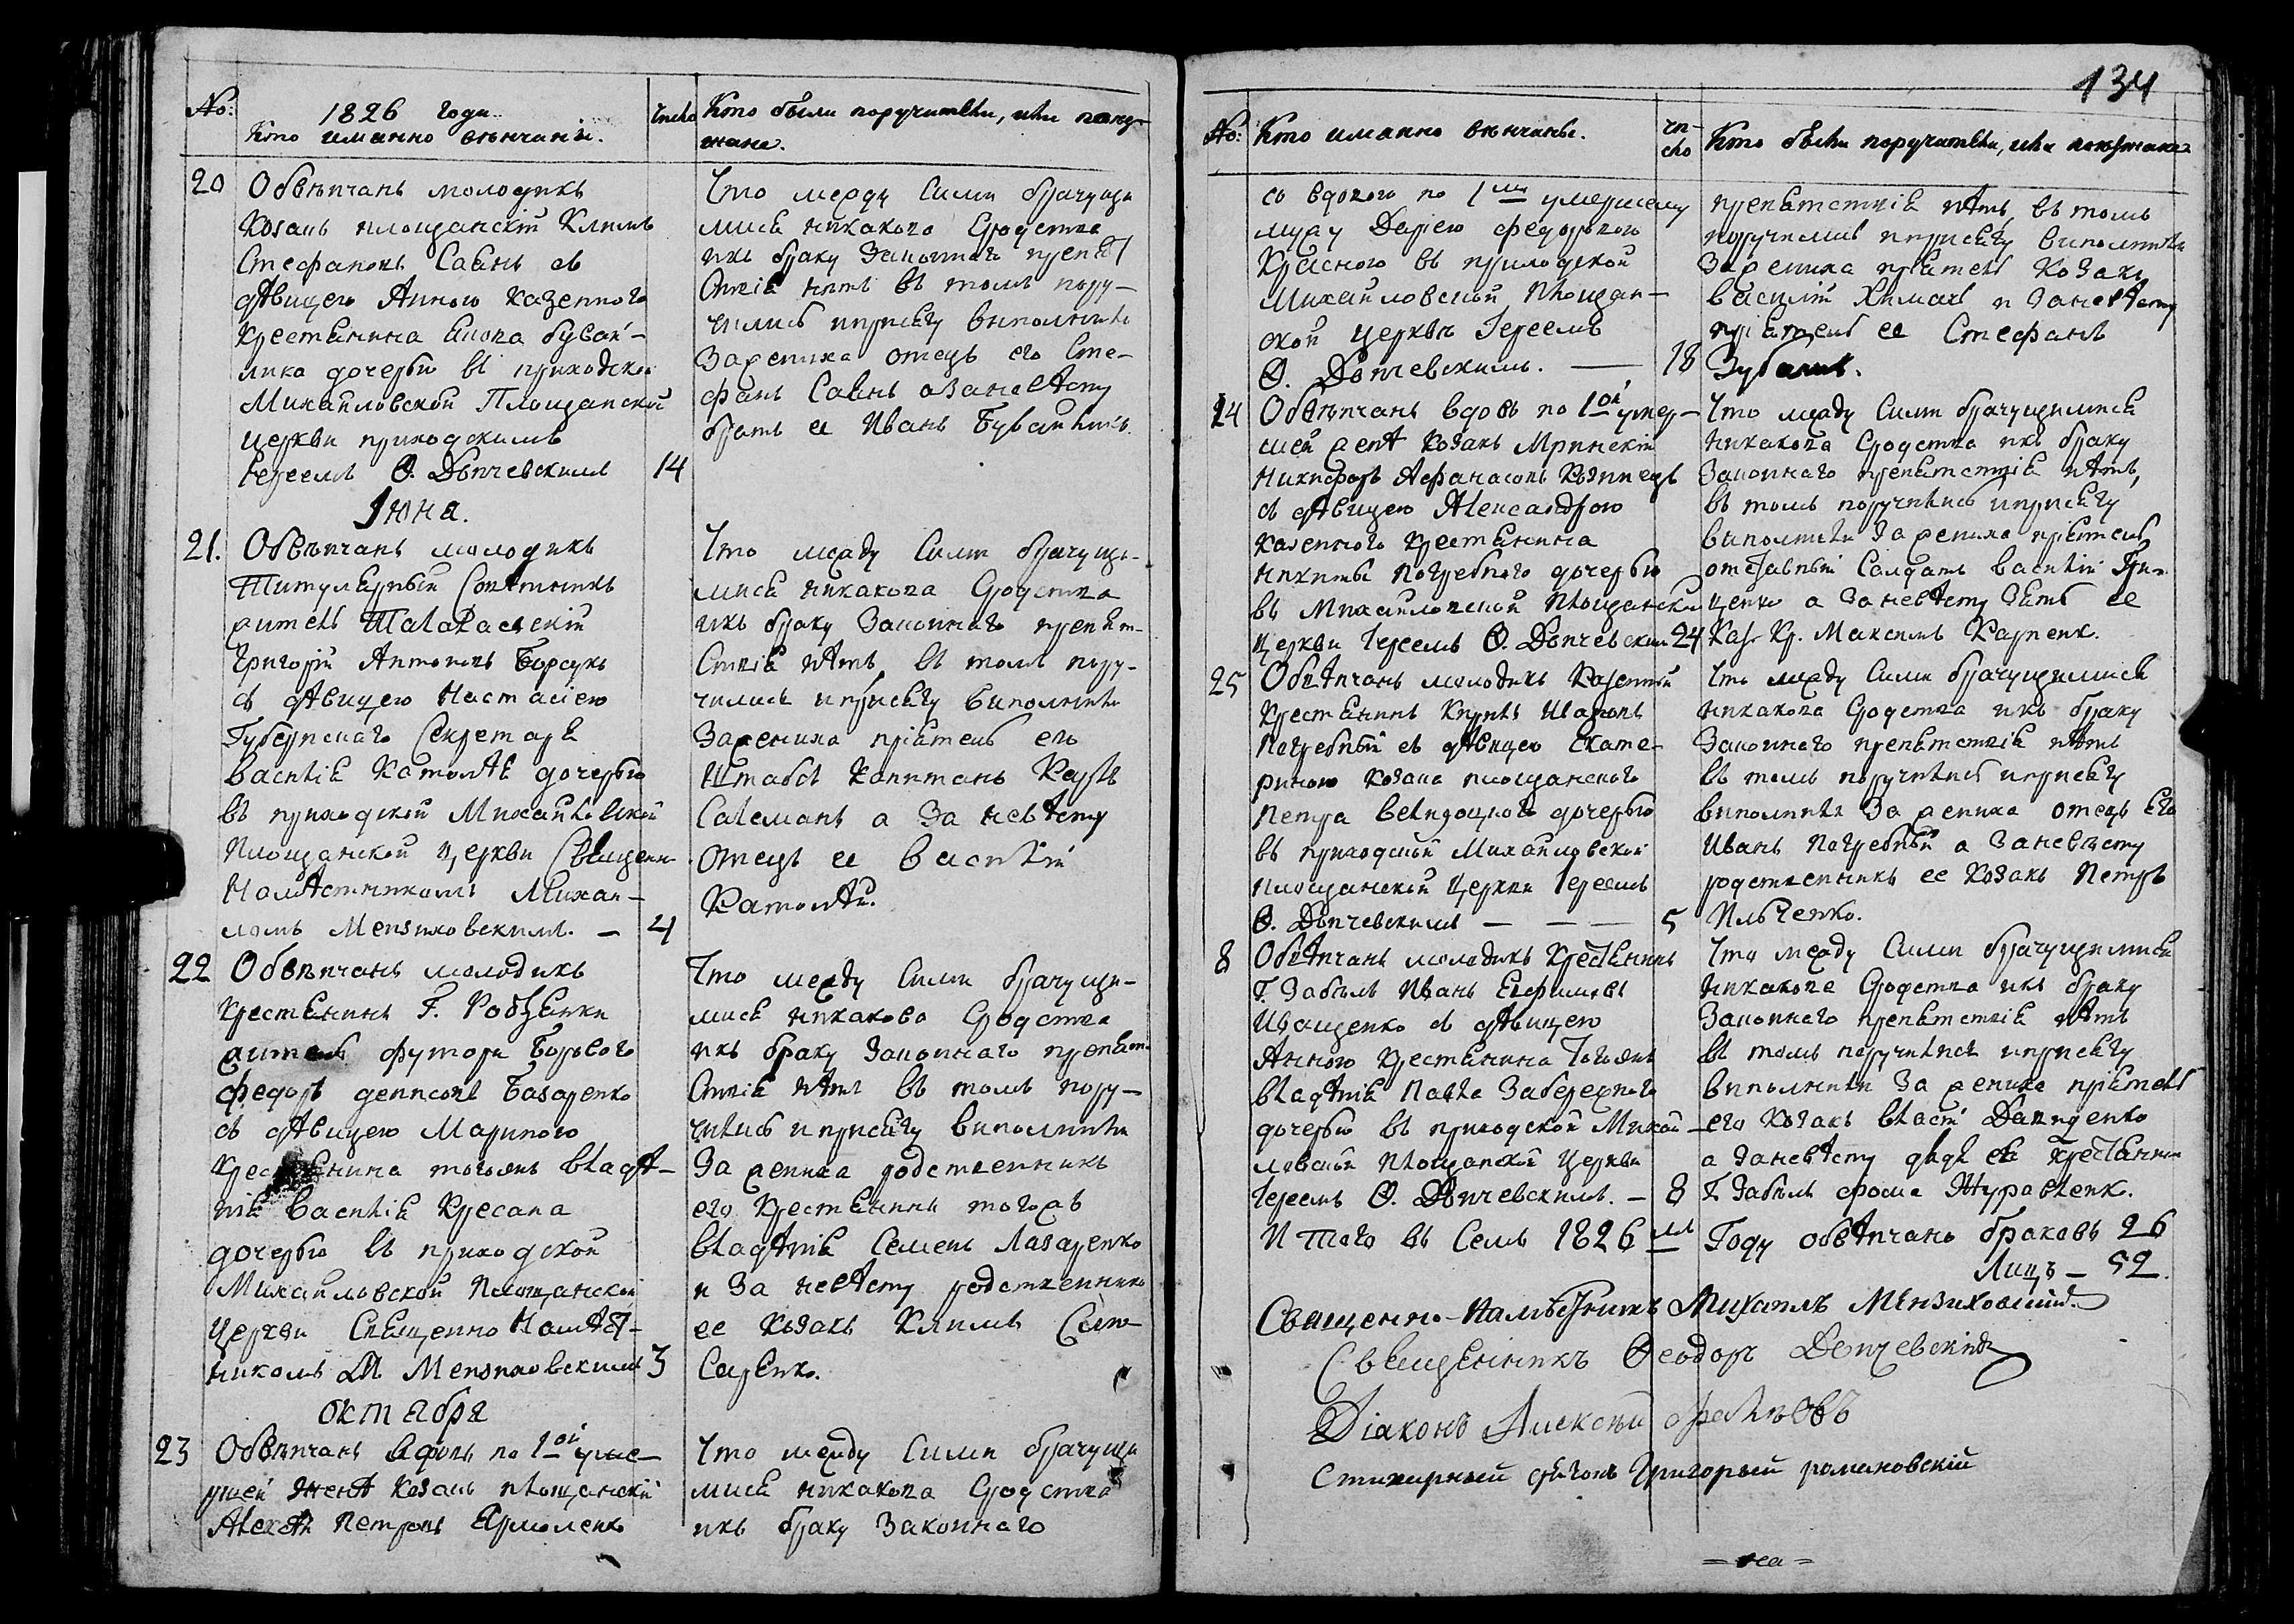 134
No:
1826 года
Кто иманно венчаній.
Число
Кто были поручители, или поезжане.
20
Обвѣнчанъ молодикъ
Козакъ площанскій Климъ
Стефановъ Савнъ съ
дѣвицею Анною казенного
Крестянина
лика дочерью въ приходской
Михайловской Площанской
церкви приходскимъ
Іереемъ Ѳ. Дончевскимъ 14
Что между Сими брачущи
мися никакого Сродства
икъ браку Законного препят
Ствія нѣтъ въ томъ пору-
чились иприсягу выполнили
Зажениха отецъ его Сте-
фанъ Савнъ азаневѣсту
братъ ее Иванъ Бувайликъ.
Іюна.
21.
Обвѣнчанъ молодикъ
Титулярный Совѣтникъ
житель
Григорій Антоновъ Борсукъ
съ дѣвицею Настасіею
Губернскаго Секретаря
Василія Католѣя дочерью
въ приходской Михайловской
Площанской церкви Священно
Намѣстникомъ Михаи-
ломъ Мензиховскимъ. — 4
Что между Сими брачущи-
мися никакова Сродства
икъ браку Законнаго препят-
Ствія нѣтъ, въ томъ пору-
чились иприсягу виполнили
Зажениха пріятель его
Штабсъ Капитанъ
а За невѣсту
отецъ ее Василій
Католѣй.
22
Обвѣнчанъ молодикъ
Крестянинъ Г.
житель футора Борового
Федоръ денисовъ Базаренко
съ дѣвицею Мариною
Крестянина тогожъ владѣ-
нія Василія Кресана
дочерью въ приходской
Михайловской Площанской
Церкви Священно Намѣст-
никомъ М. Мензиховскимъ 3
Что между Сими брачущи-
мися никакова Сродства
икъ браку Законнаго препят
Ствія нѣтъ въ томъ пору-
чились и присягу виполнили
За жениха родственникъ
его Крестянинъ тогожъ
владѣнія Семенъ Лазаренко
и За невѣсту родственникъ
ее Козакъ Климъ
октября
23
Обвѣнчанъ вдовъ по 1ой уме-
ршей женѣ Козакъ площанскій
Алексѣй Петровъ Ермоленко
Что между Сими брачущи
мися никакова Сродства
икъ браку Законнаго
No:
Кто иманно венчаны.
чи-
сло
Кто были поручители, или поезжане
съ вдовою по 1мъ умершему
мужу Даріею федоровою
Красного въ приходской
Михайловской Площан-
ской церквѣ Іереемъ
Ѳ. Дончевскимъ. — 18
препятствія нѣтъ, въ томъ
поручились иприсягу виполнили
Зажениха пріятель Козакъ
Василій Химахъ и Заневѣсту
пріятель ее Стефанъ
24
Обвѣнчанъ вдовъ по 1ой умер-
шей женѣ Козакъ Мринскій
Никифоръ Афанасовъ
съ дѣвицею Александрою
казенного Крестянина
Никиты Погребного дочерью
въ Михайловской Площанской
Церкви Іереемъ Ѳ. Дончевскимъ 24
Что между Сими брачущимися
никакова Сродства икъ браку
Законнаго препятствія нѣтъ,
въ томъ поручились иприсягу
виполнили Зажениха пріятель
отставный Салдатъ Василій Гри-
ценко а Заневѣсту Зять ее
Каз. Кр. Максимъ Карпенк.
25
Обвѣнчанъ молодикъ Казенный
Крестянинъ Кирилъ Ивановъ
Погребный съ дѣвицею Екате-
риною козака площанского
Петра дочерью
въ приходской Михайловской
площанской Церкви Іереемъ
Ѳ. Дончевскимъ — — — 5
Что между Сими брачущимися
никакова Сродства икъ браку
Законнаго препятствія нѣтъ
въ томъ поручились иприсягу
виполнили За жениха отецъ его
Иванъ Погребный а Заневѣсту
родственникъ ее Козакъ Петръ
Ильченко.
8
Обвѣнчанъ молодикъ Крестянинъ
Г. Забѣлъ Иванъ Евфимовъ
Иващенко съ дѣвицею
Анною Крестянина тогожъ
владѣнія Павла Забережного
дочерью въ приходской Михай-
ловской Площанской Церкви
Іереемъ Ѳ. Дончевскимъ. — 8
Что между Сими брачущимися
никакова Сродства икъ браку
Законнаго препятствія нѣтъ
въ томъ поручились иприсягу
виполнили За жениха пріятель
его Козакъ Давиденко
а Заневѣсту дядя ея Крестянинъ
Г. Забѣлъ фома Журавленк.
И того въ Семъ 1826мъ Году обвѣнчано браковъ 26
Лицъ — 52.
Священно-Намѣстникъ Михаилъ Мензиховскій.
Священникъ Ѳеодоръ Дончевскій
Діаконъ Алексѣй
Стихирный дьячокъ Григорый романовскій